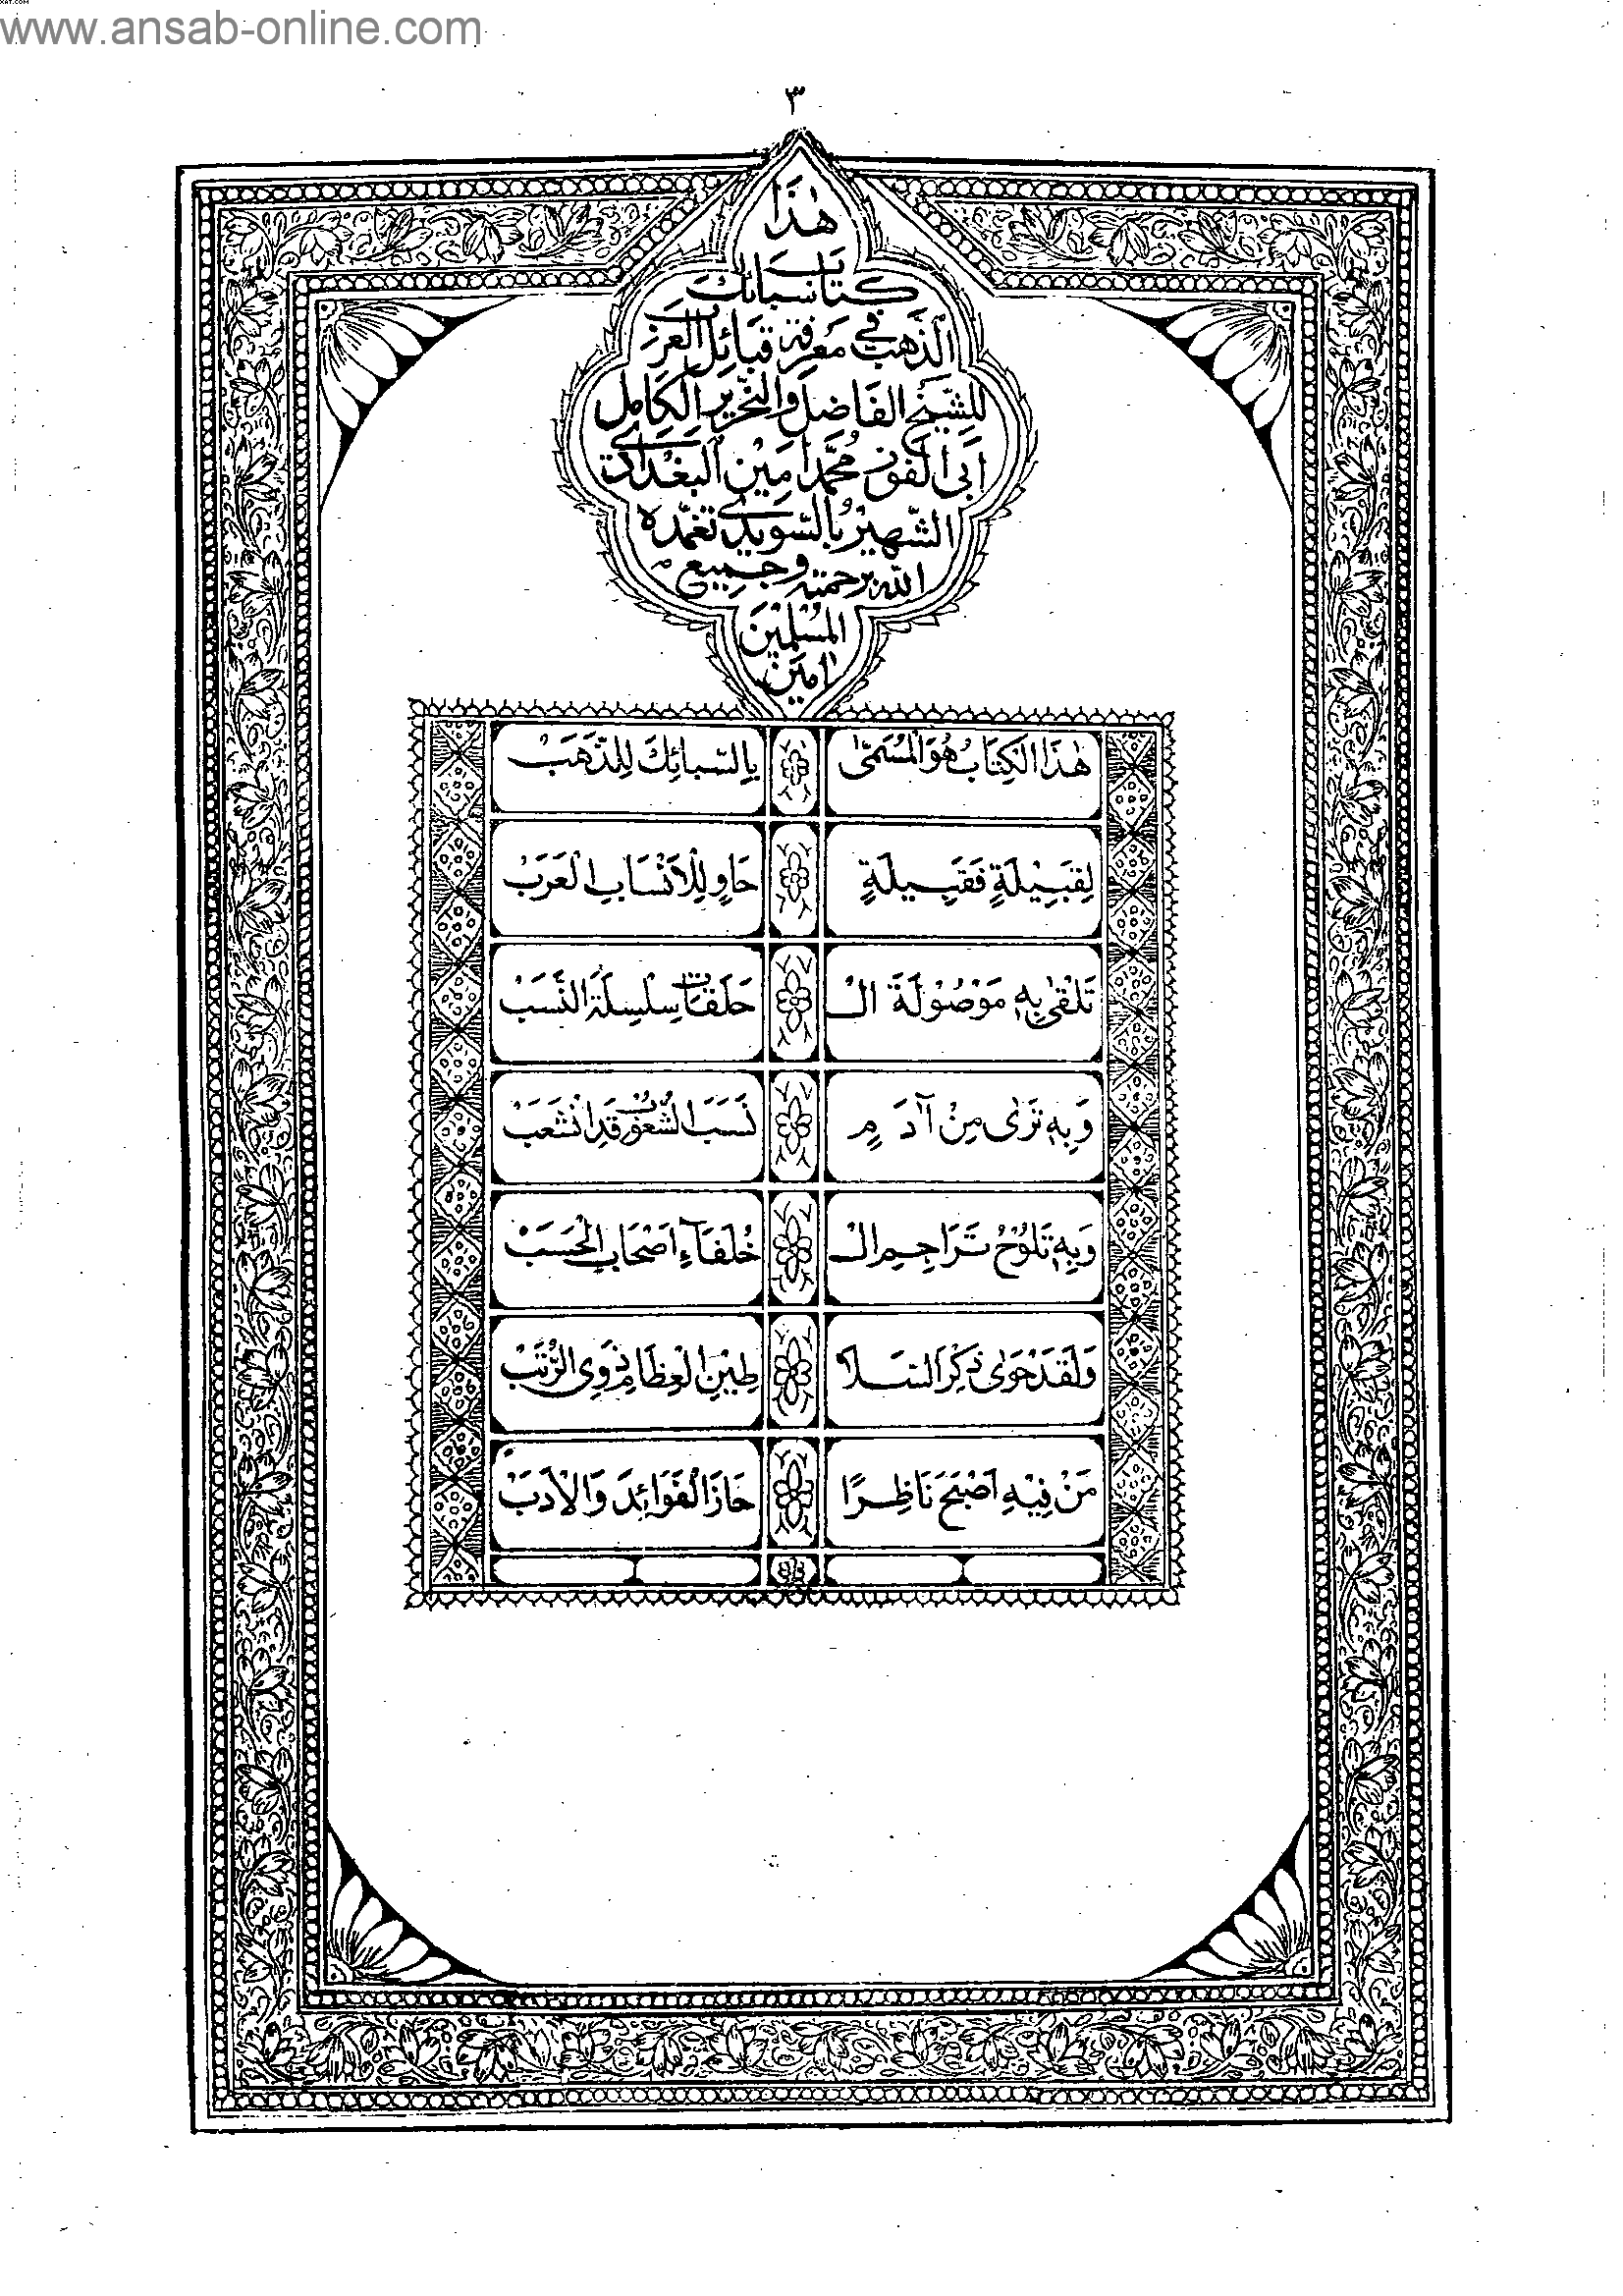 www.ansab-online.com
٣
هٰذَا
كتاب سبائك
الذَّهب في معرفة قبائل العرب
للشَّيخ الفاضل والنحرير الكامل
أبى الفوز محمَّد أمين البغدادى
الشَّهير بالسّويدى تغمَّده
الله برحمته وجميع
المُسْلمِيْنَ
اٰمين
هٰذَا الْكِتَابُ هُوَ الْمُسَمّٰى بِالسَّبائِكَ لِلذَّهَبْ
لِقَبِيْلَةٍ فَقَبِيلَةٍ حَاوٍ لِلْاَنْسَابِ الْعَرَبْ
تَلْقٰى بِهٖ مَوْصُوْلَةَ الْـ حَلَقَاتِ سِلْسِلَةَ النَّسَبْ
وَبِهٖ تَرٰى مِنْ آدَمٍ نَسَبَ الشُّعُوْبِ قَدِ انْشَعَبْ
وَبِهٖ تَلُوْحُ تَرَاجِيمِ الْـ خُلَفَآءِ اَصْحَابِ الْحَسَبْ
وَلَقَدْ حَوٰى ذِكْرَ السَّلَا طِيْنِ الْعِظَامِ ذَوِى الرُّتَبْ
مَنْ فِيْهِ اَصْبَحَ نَاظِرًا حَازَ الْفَوَائِدَ وَالْاَدَبْ